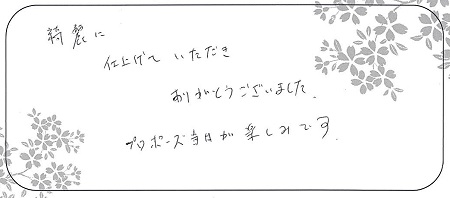 綺麗に
仕上げて いただき
ありがとうございました.
プロポーズ当日が楽しみです.